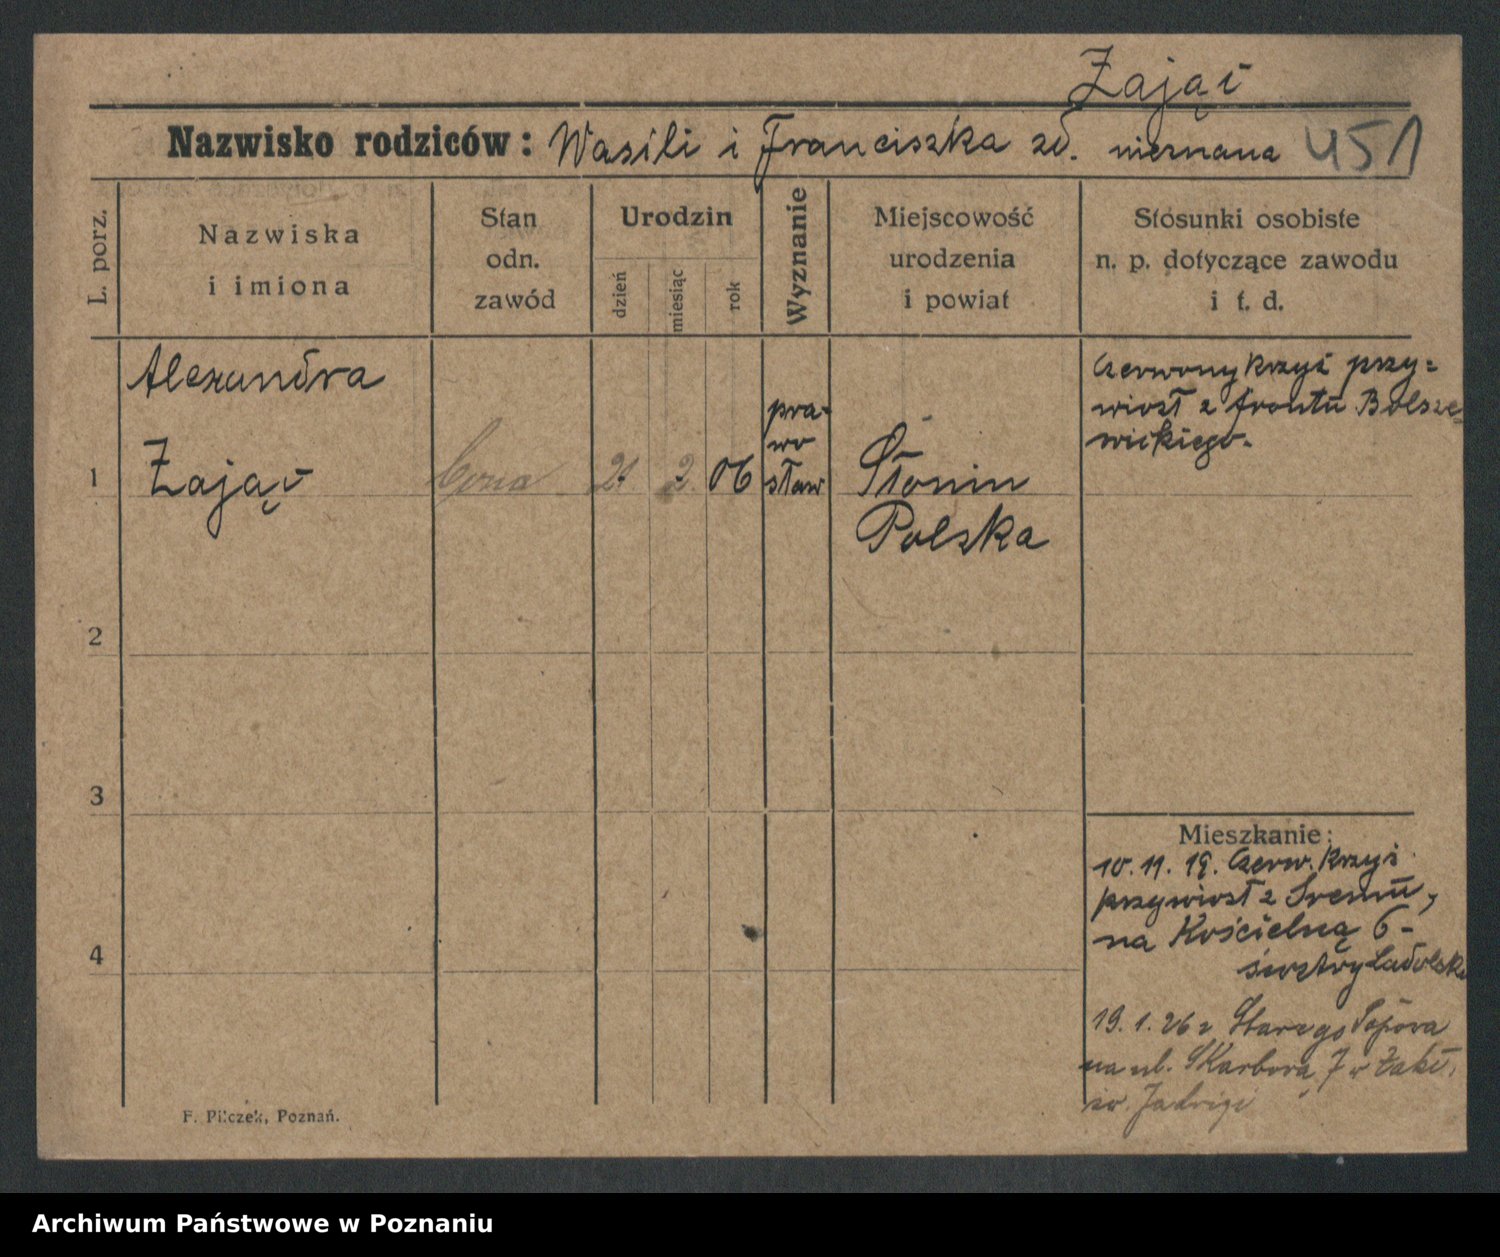 Zając
Nazwisko rodziców: Wasili i Franciszka zd. nieznana 451
L. porz.
Nazwiska
i imiona
Stan
odn.
zawód
Urodzin
dzień
miesiąc
rok
Wyznanie
Miejscowość
urodzenia
i powiat
Stosunki osobiste
n. p. dotyczące zawodu
i t. d.
1
Alexandra
Zając
Córka
21. 2. 06
pra-
wo
sław
Słonim
Polska
Czerwony Krzyż przy-
wiozł z frontu Bolsze
wickiego.
2
3
4
Mieszkanie:
10. 11. 19. Czerw. Krzyż
przywiozł z Śremu,
na Kościelną 6 -
siostry
19. 1. 26 z Starego
na ul. Skarbową 7 w Zakł.
św. Jadwigi
F. Pilczek, Poznań.
Archiwum Państwowe w Poznaniu